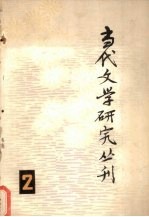 当代文学研究丛刊
2